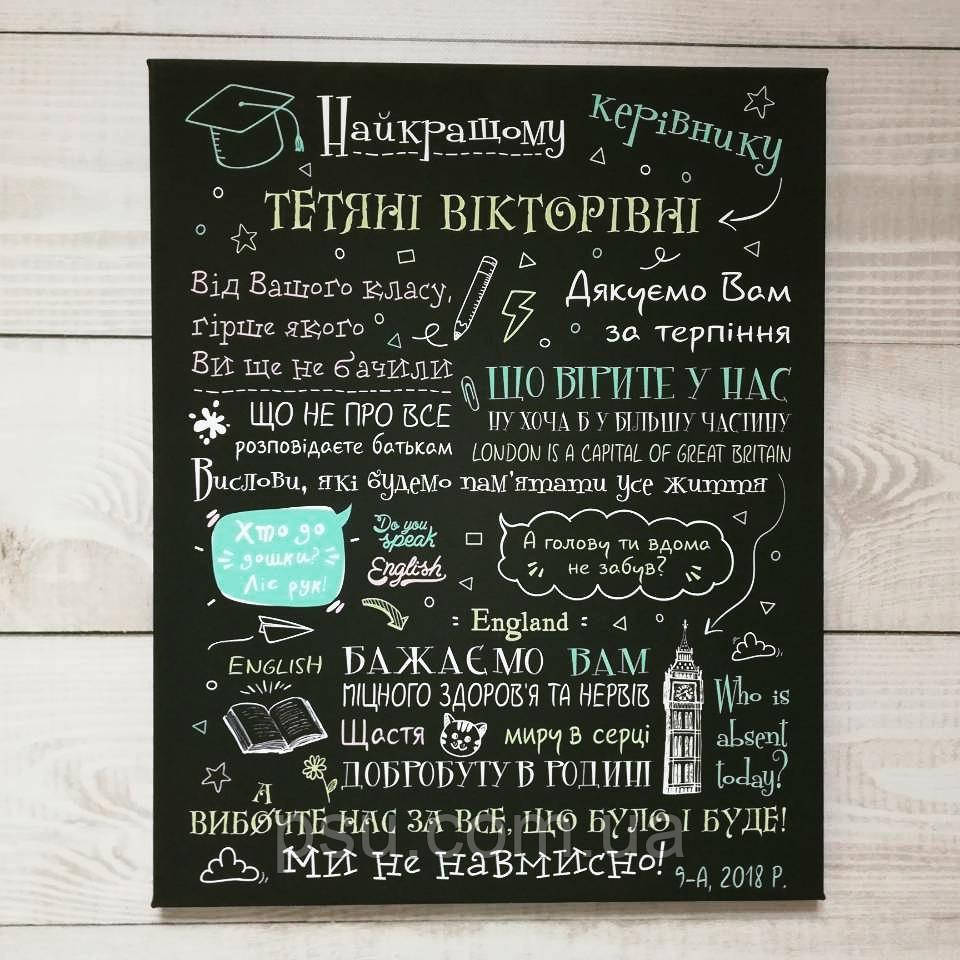 Найкращому керівнику
ТЕТЯНІ ВІКТОРІВНІ
Від Вашого класу,
гірше якого
Ви ще не бачили
Дякуємо Вам
за терпіння
ЩО ВІРИТЕ У НАС
НУ ХОЧА Б У БІЛЬШУ ЧАСТИНУ
ЩО НЕ ПРО ВСЕ
розповідаєте батькам
LONDON IS A CAPITAL OF GREAT BRITAIN
Вислови, які будемо пам'ятати усе життя
Хто до
дошки?
Ліс рук!
Do you
speak
English
А голову ти вдома
не забув?
England
ENGLISH
БАЖАЄМО ВАМ
МІЦНОГО ЗДОРОВ'Я ТА НЕРВІВ
Щастя миру в серці
ДОБРОБУТУ В РОДИНІ
Who is
absent
today?
А
ВИБОЧТЕ НАС ЗА ВСЕ, ЩО БУЛО І БУДЕ!
psu.com.ua
Ми не навмисно!
9-А, 2018 Р.